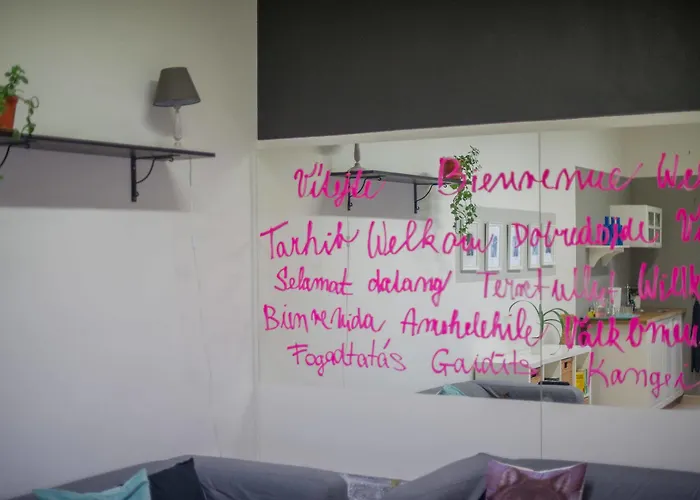 Vítejte Bienvenue We
Tarhib Welkom Dobredojde V
Selamat datang Tervetullet Willk
Bienvenida Amohelehile Välkommen
Fogadtatás Gaidīts Kangei